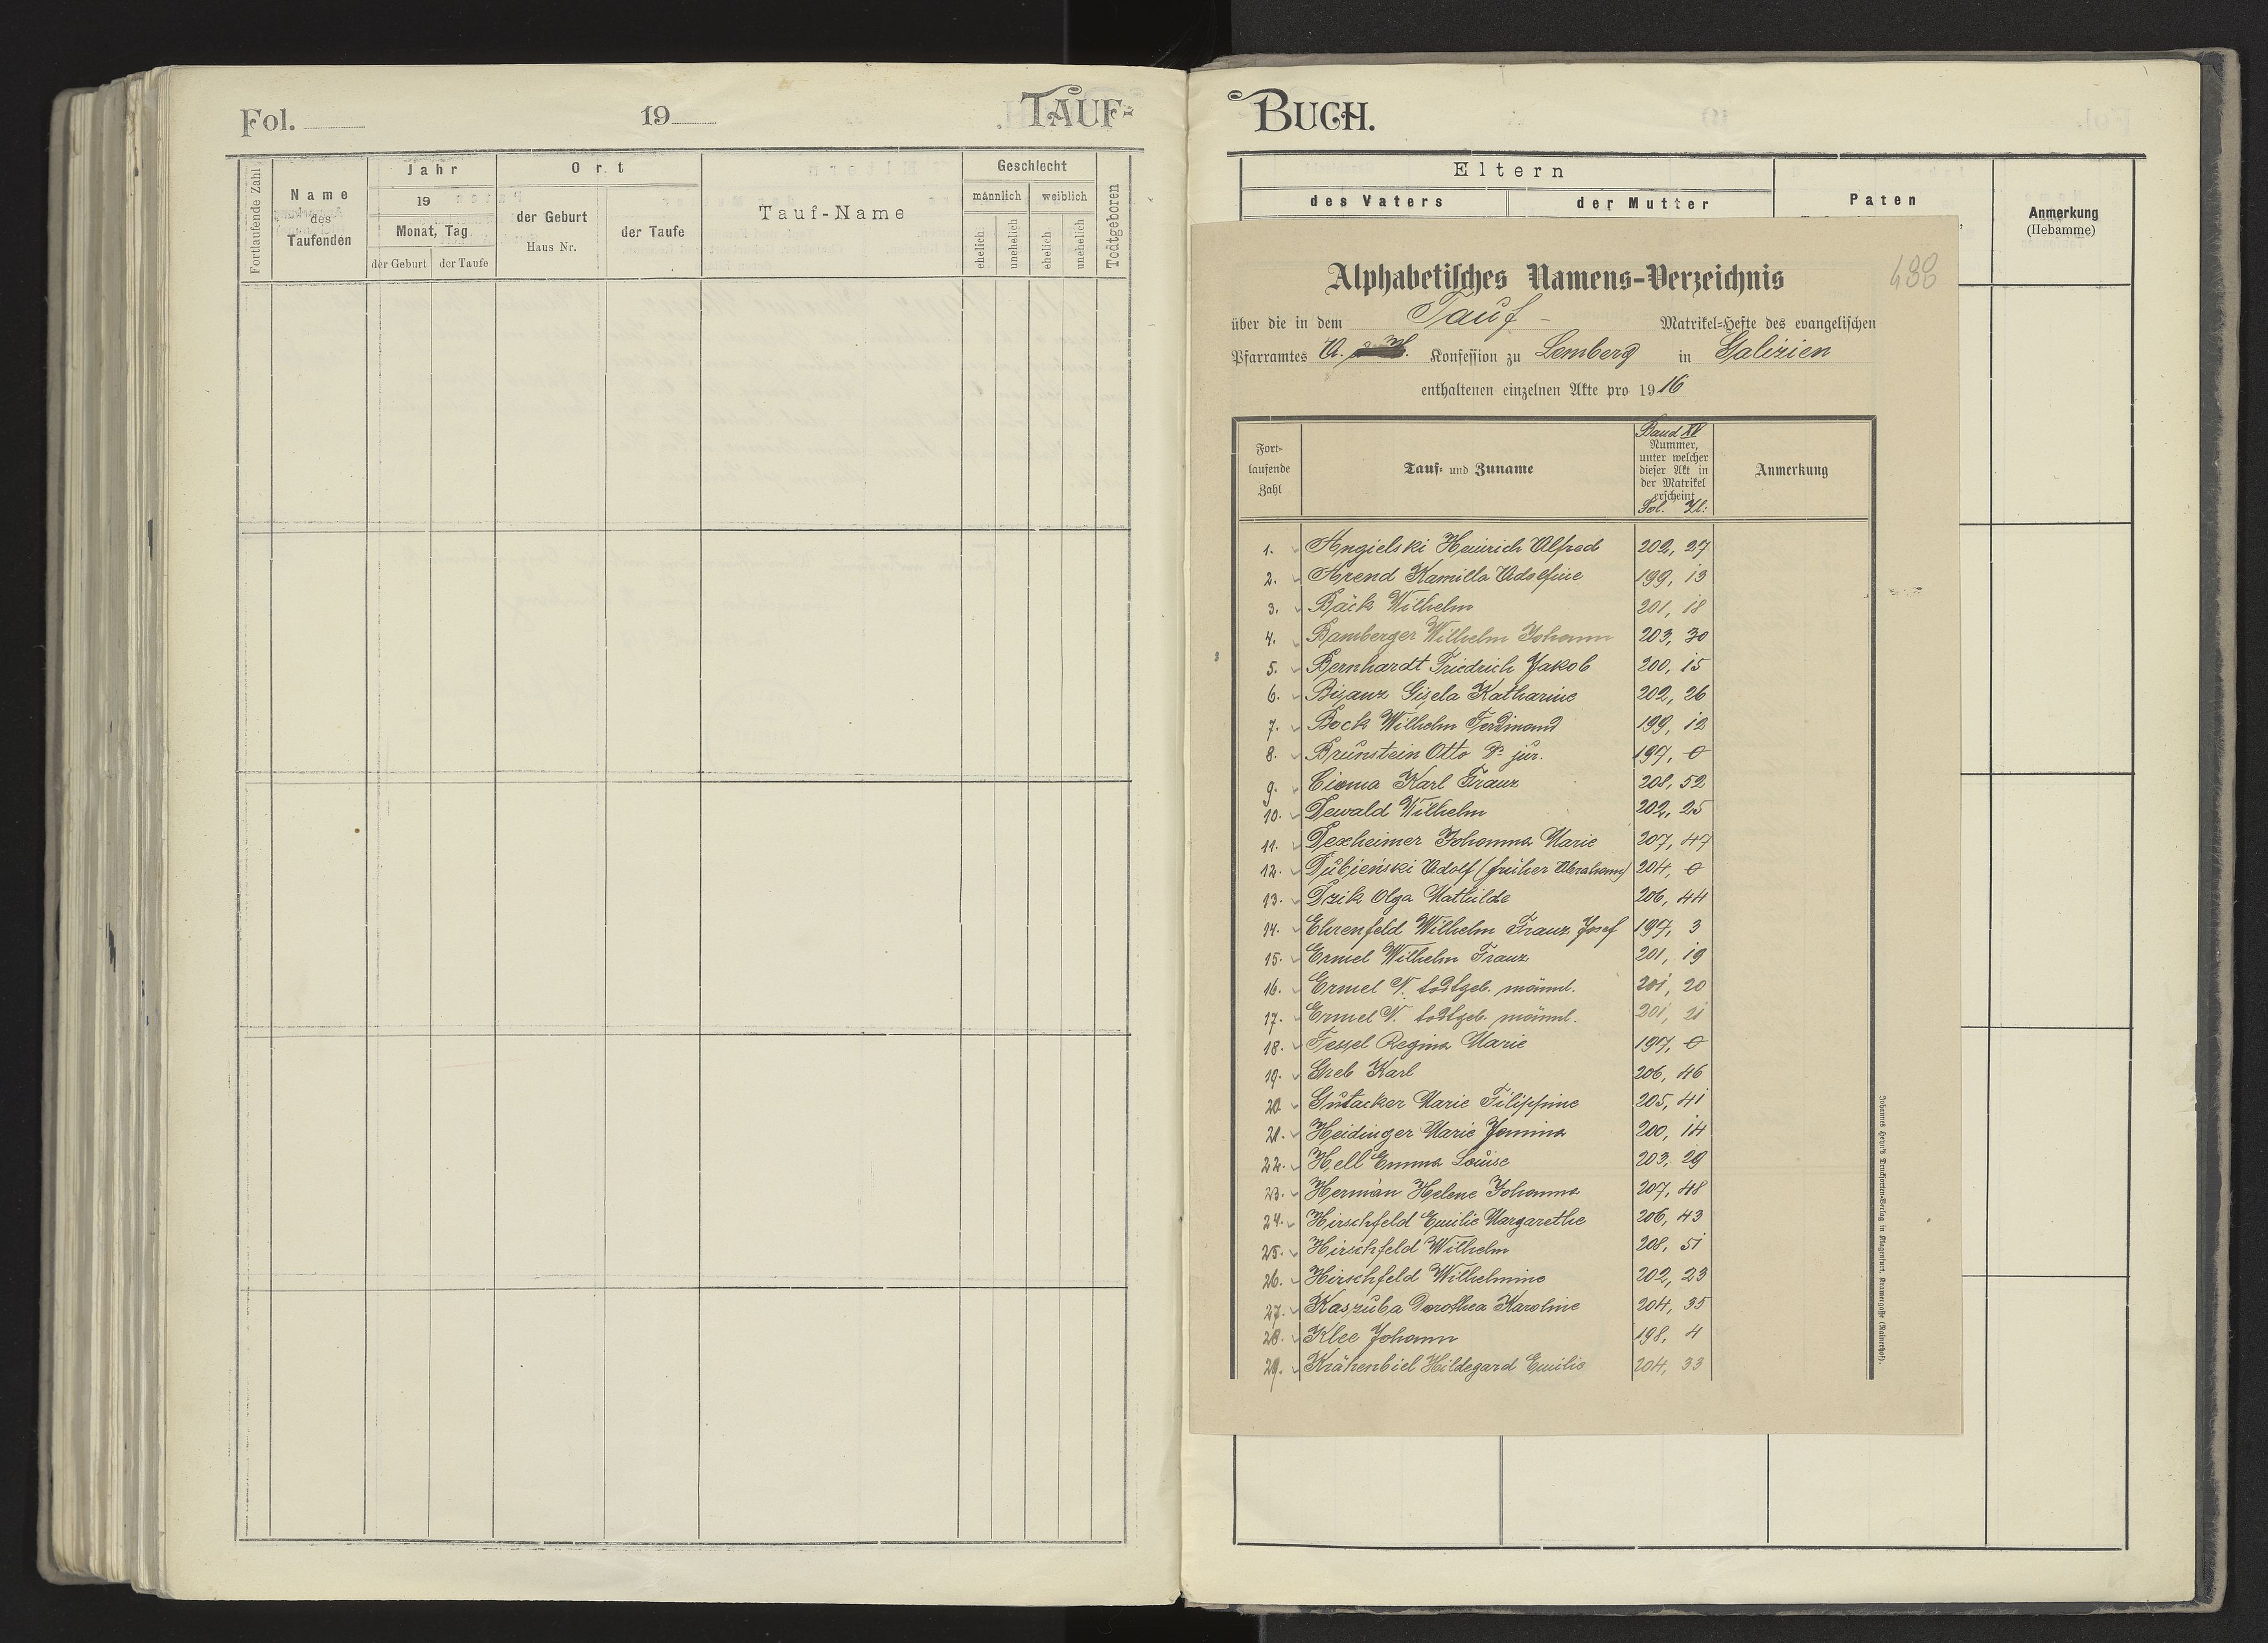 Fol. 19 TAUF-
Fortlaufende Zahl
Name
des
Taufenden
Jahr
19
Monat, Tag
der Geburt der Taufe
Ort
der Geburt
Haus Nr.
der Taufe
Tauf-Name
Geschlecht
männlich weiblich
ehelich unehelich ehelich unehelich
Todtgeboren
BUCH.
Eltern
des Vaters der Mutter
Paten
Anmerkung
(Hebamme)
488
Alphabetisches Namens-Verzeichnis
über die in dem Tauf- Matrikel-Hefte des evangelischen
Pfarramtes A. H. Konfession zu Lemberg in Galizien
enthaltenen einzelnen Akte pro 1916
Fort-
laufende
Zahl
Tauf- und Zuname
Band XV
Nummer,
unter welcher
dieser Akt in
der Matrikel
erscheint
Fol. Zl:
Anmerkung
1. Angielski Heinrich Alfred 202, 27
2. Arend Kamilla Adolfine 199, 13
3. Bäck Wilhelm 201, 18
4. Bamberger Wilhelm Johann 203, 30
5. Bernhardt Friedrich Jakob 200, 15
6. Bisanz Gisela Katharine 202, 26
7. Bock Wilhelm Ferdinand 199, 12
8. Brunstein Otto Dr jur. 197, 0
9. Cioma Karl Franz 208, 52
10. Dewald Wilhelm 202, 25
11. Dexheimer Johanna Marie 207, 47
12. Dubieński Adolf (früher Abraham) 204, 0
13. Dzik Olga Mathilde 206, 44
14. Ehrenfeld Wilhelm Franz Josef 197, 3
15. Ermel Wilhelm Franz 201, 19
16. Ermel N. todtgeb. männl. 201, 20
17. Ermel N. todtgeb. männl. 201, 21
18. Fessel Regina Marie 197, 0
19. Greb Karl 206, 46
20. Gutacker Marie Filippine 205, 41
21. Heidinger Marie Janina 200, 14
22. Hell Emma Louise 203, 29
23. Hermán Helene Johanna 207, 48
24. Hirschfeld Emilie Margarethe 206, 43
25. Hirschfeld Wilhelm 208, 51
26. Hirschfeld Wilhelmine 202, 23
27. Kaszuba Dorothea Karoline 204, 35
28. Klee Johann 198, 4
29. Krähenbiel Hildegard Emilie 204, 33
Johannes Heyn's Drucksorten-Verlag in Klagenfurt, Kramergasse (Rainerhof).